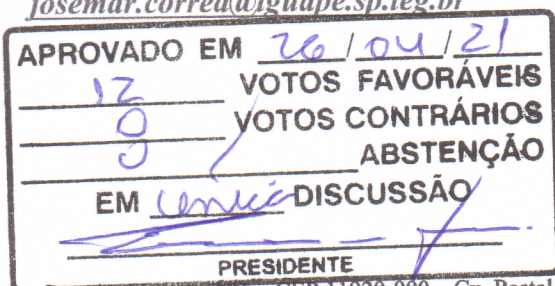 josemar.correa@iguape.sp.leg.br
APROVADO EM 26/04/21
12 VOTOS FAVORÁVEIS
0 VOTOS CONTRÁRIOS
0 ABSTENÇÃO
EM única DISCUSSÃO
PRESIDENTE
CEP 11920-000 Cx. Postal